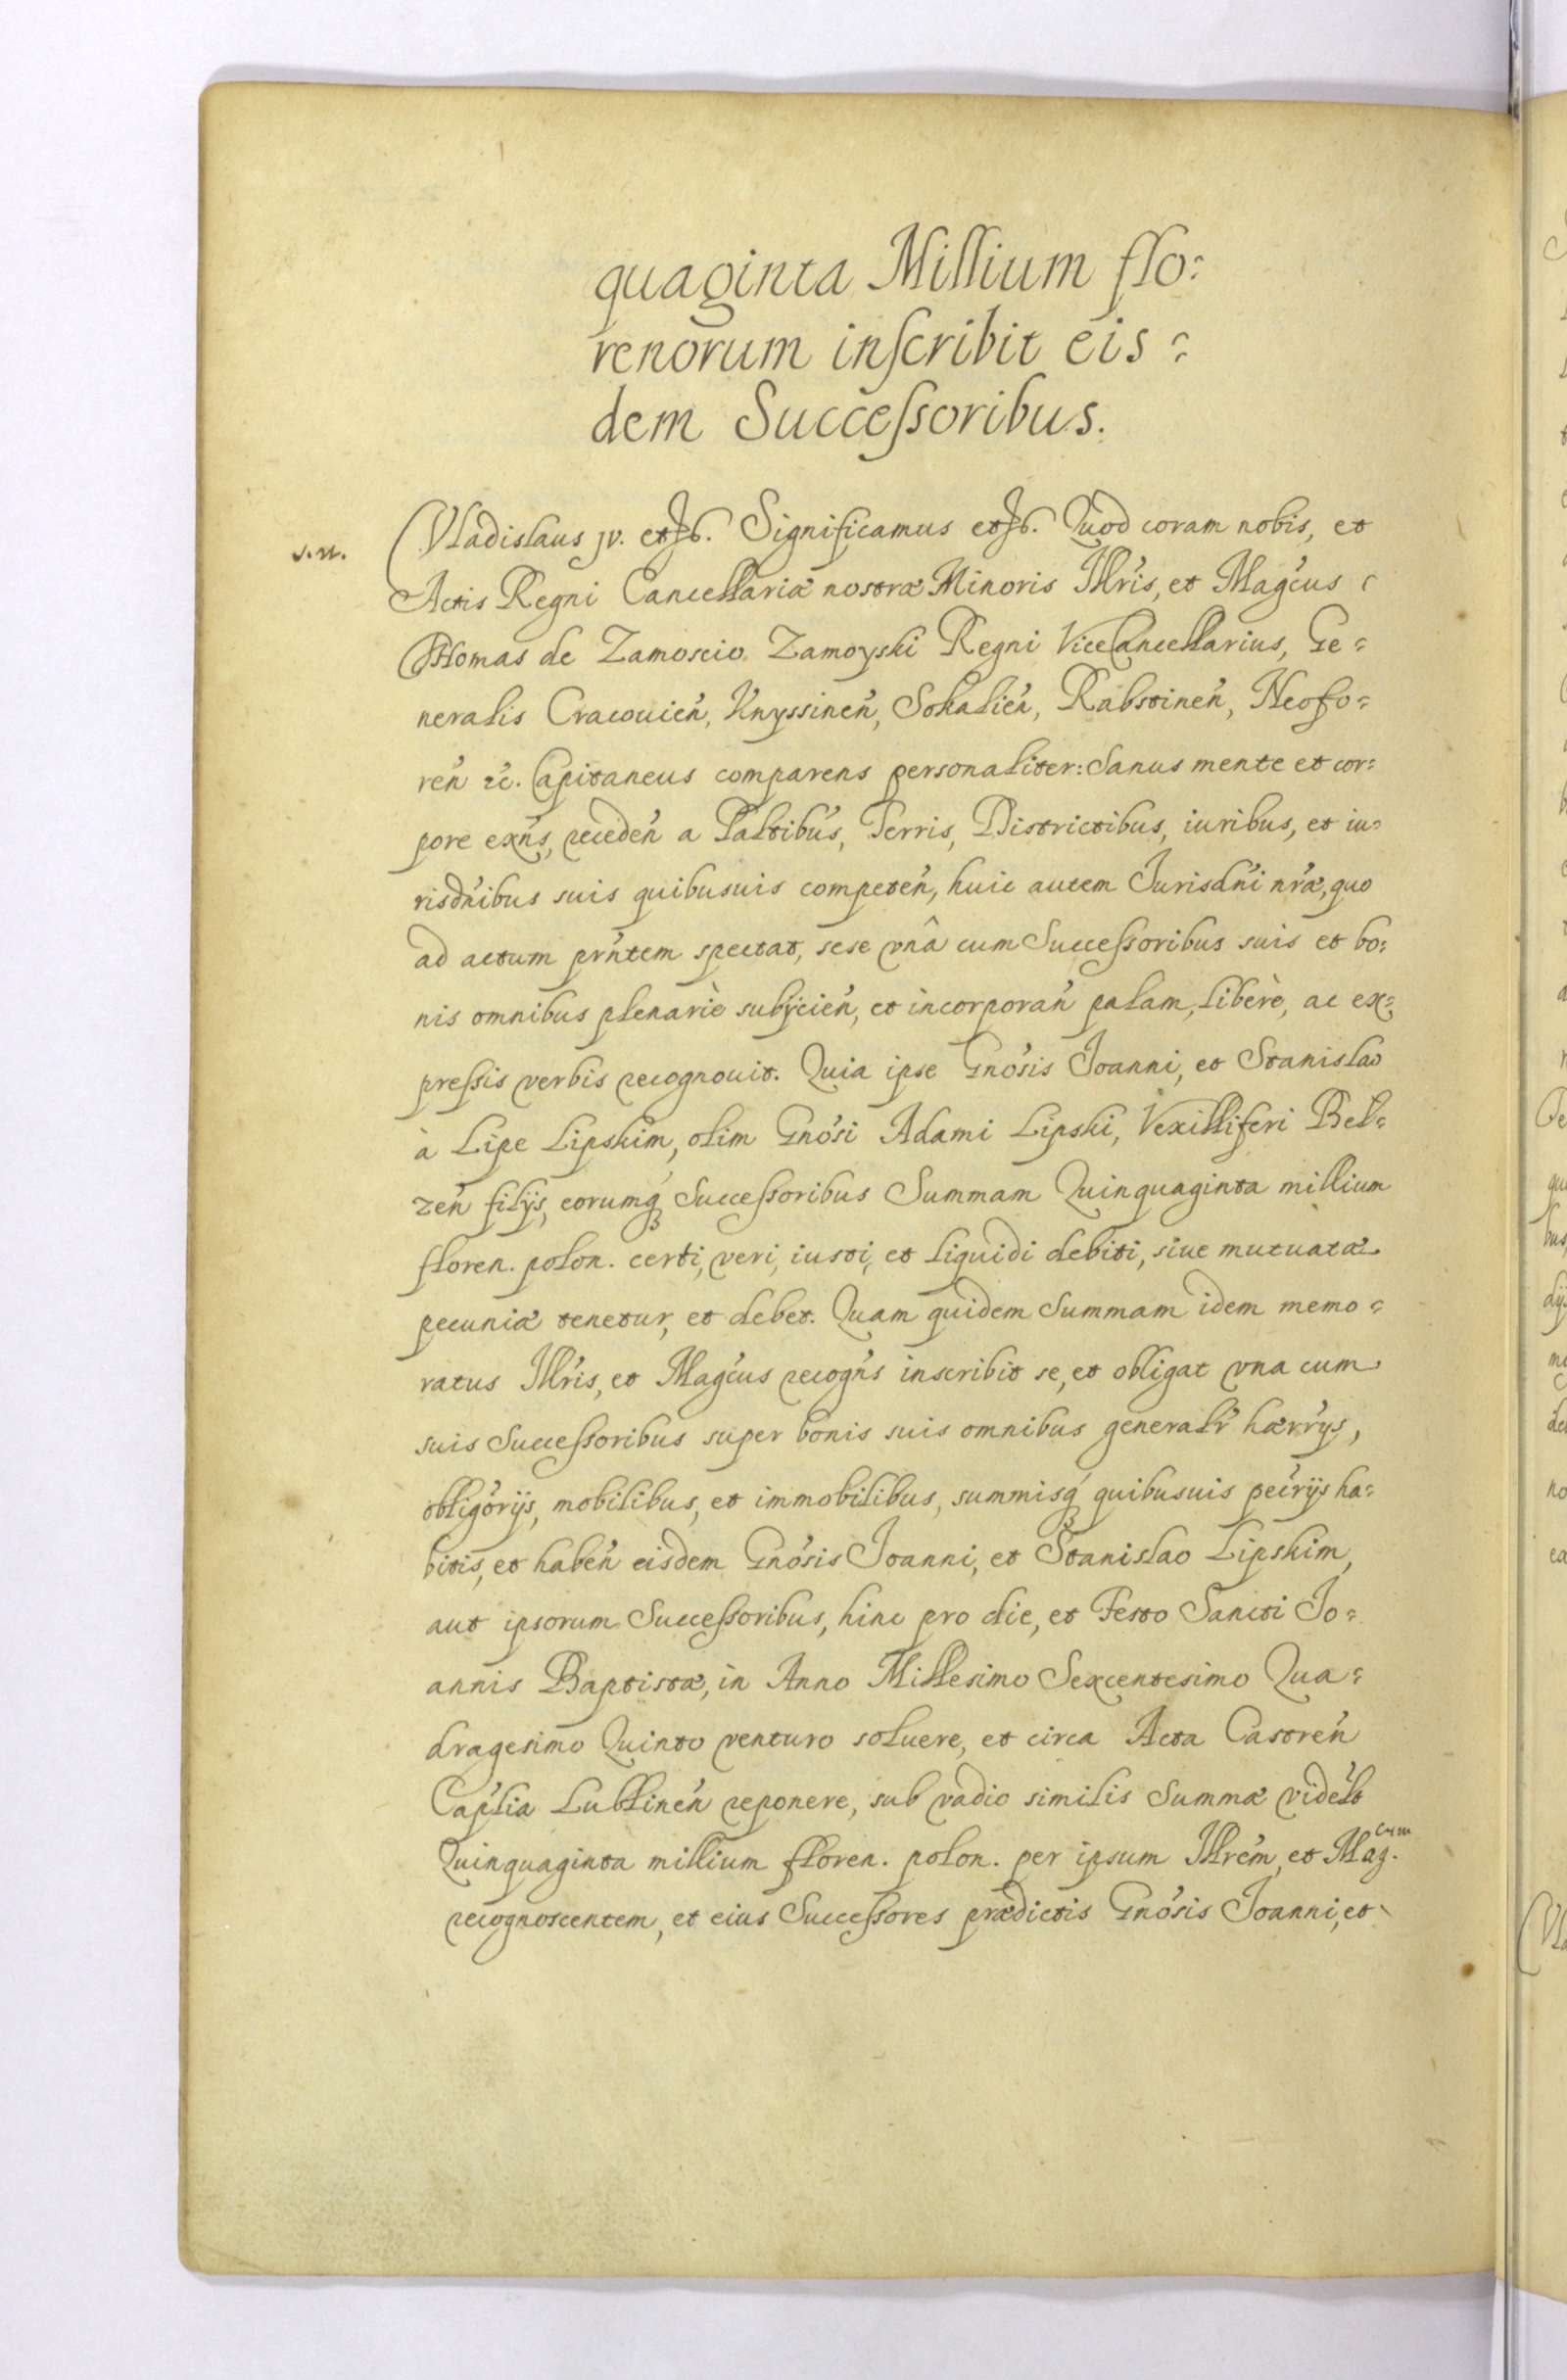 quaginta Millium flo:
renorum inscribit eis:
dem Successoribus.
Vladislaus jv. etc. Significamus etc. Quod coram nobis, et
Actis Regni Cancellariæ nostræ Minoris Illris, et Magcus
Thomas de Zamoscio Zamoyski Regni ViceCancellarius, Ge:
neralis Cracouien, Knyssinen, Sokalien, Rabstinen, Neofo:
ren etc. Capitaneus comparens personaliter: Sanus mente et cor:
pore exns, receden a Paltibus, Terris, Districtibus, iuribus, et iu:
risdnibus suis quibusuis competen, huic autem Jurisdni nræ, quo
ad actum prntem spectat, sese vnâ cum Successoribus suis et bo:
nis omnibus plenariè subijcien, et incorporan palam, liberè, ac ex:
pressis verbis recognouit. Quia ipse Gnosis Joanni, et Stanislao
à Lipe Lipskim, olim Gnosi Adami Lipski, Vexilliferi Bel:
zen filijs, eorumq Successoribus Summam Quinquaginta millium
floren. polon. certi, veri, iusti, et liquidi debiti, siue mutuatæ
pecuniæ tenetur, et debet. Quam quidem Summam idem memo:
ratus Illris, et Magcus recogns inscribit se, et obligat vna cum
suis Successoribus super bonis suis omnibus generalr hærrijs,
obligorijs, mobilibus, et immobilibus, summisq quibusuis pecrijs ha:
bitis, et haben eisdem Gnosis Joanni, et Stanislao Lipskim,
aut ipsorum Successoribus, hinc pro die, et Festo Sancti Jo:
annis Baptistæ, in Anno Millesimo Sexcentesimo Qua:
dragesimo Quinto venturo soluere, et circa Acta Castren
Caplia Lublinen reponere, sub vadio similis Summæ videlt
Quinquaginta millium floren. polon. per ipsum Illrem, et Mag.cum
recognoscentem, et eius Successores prædictis Gnosis Joanni, et